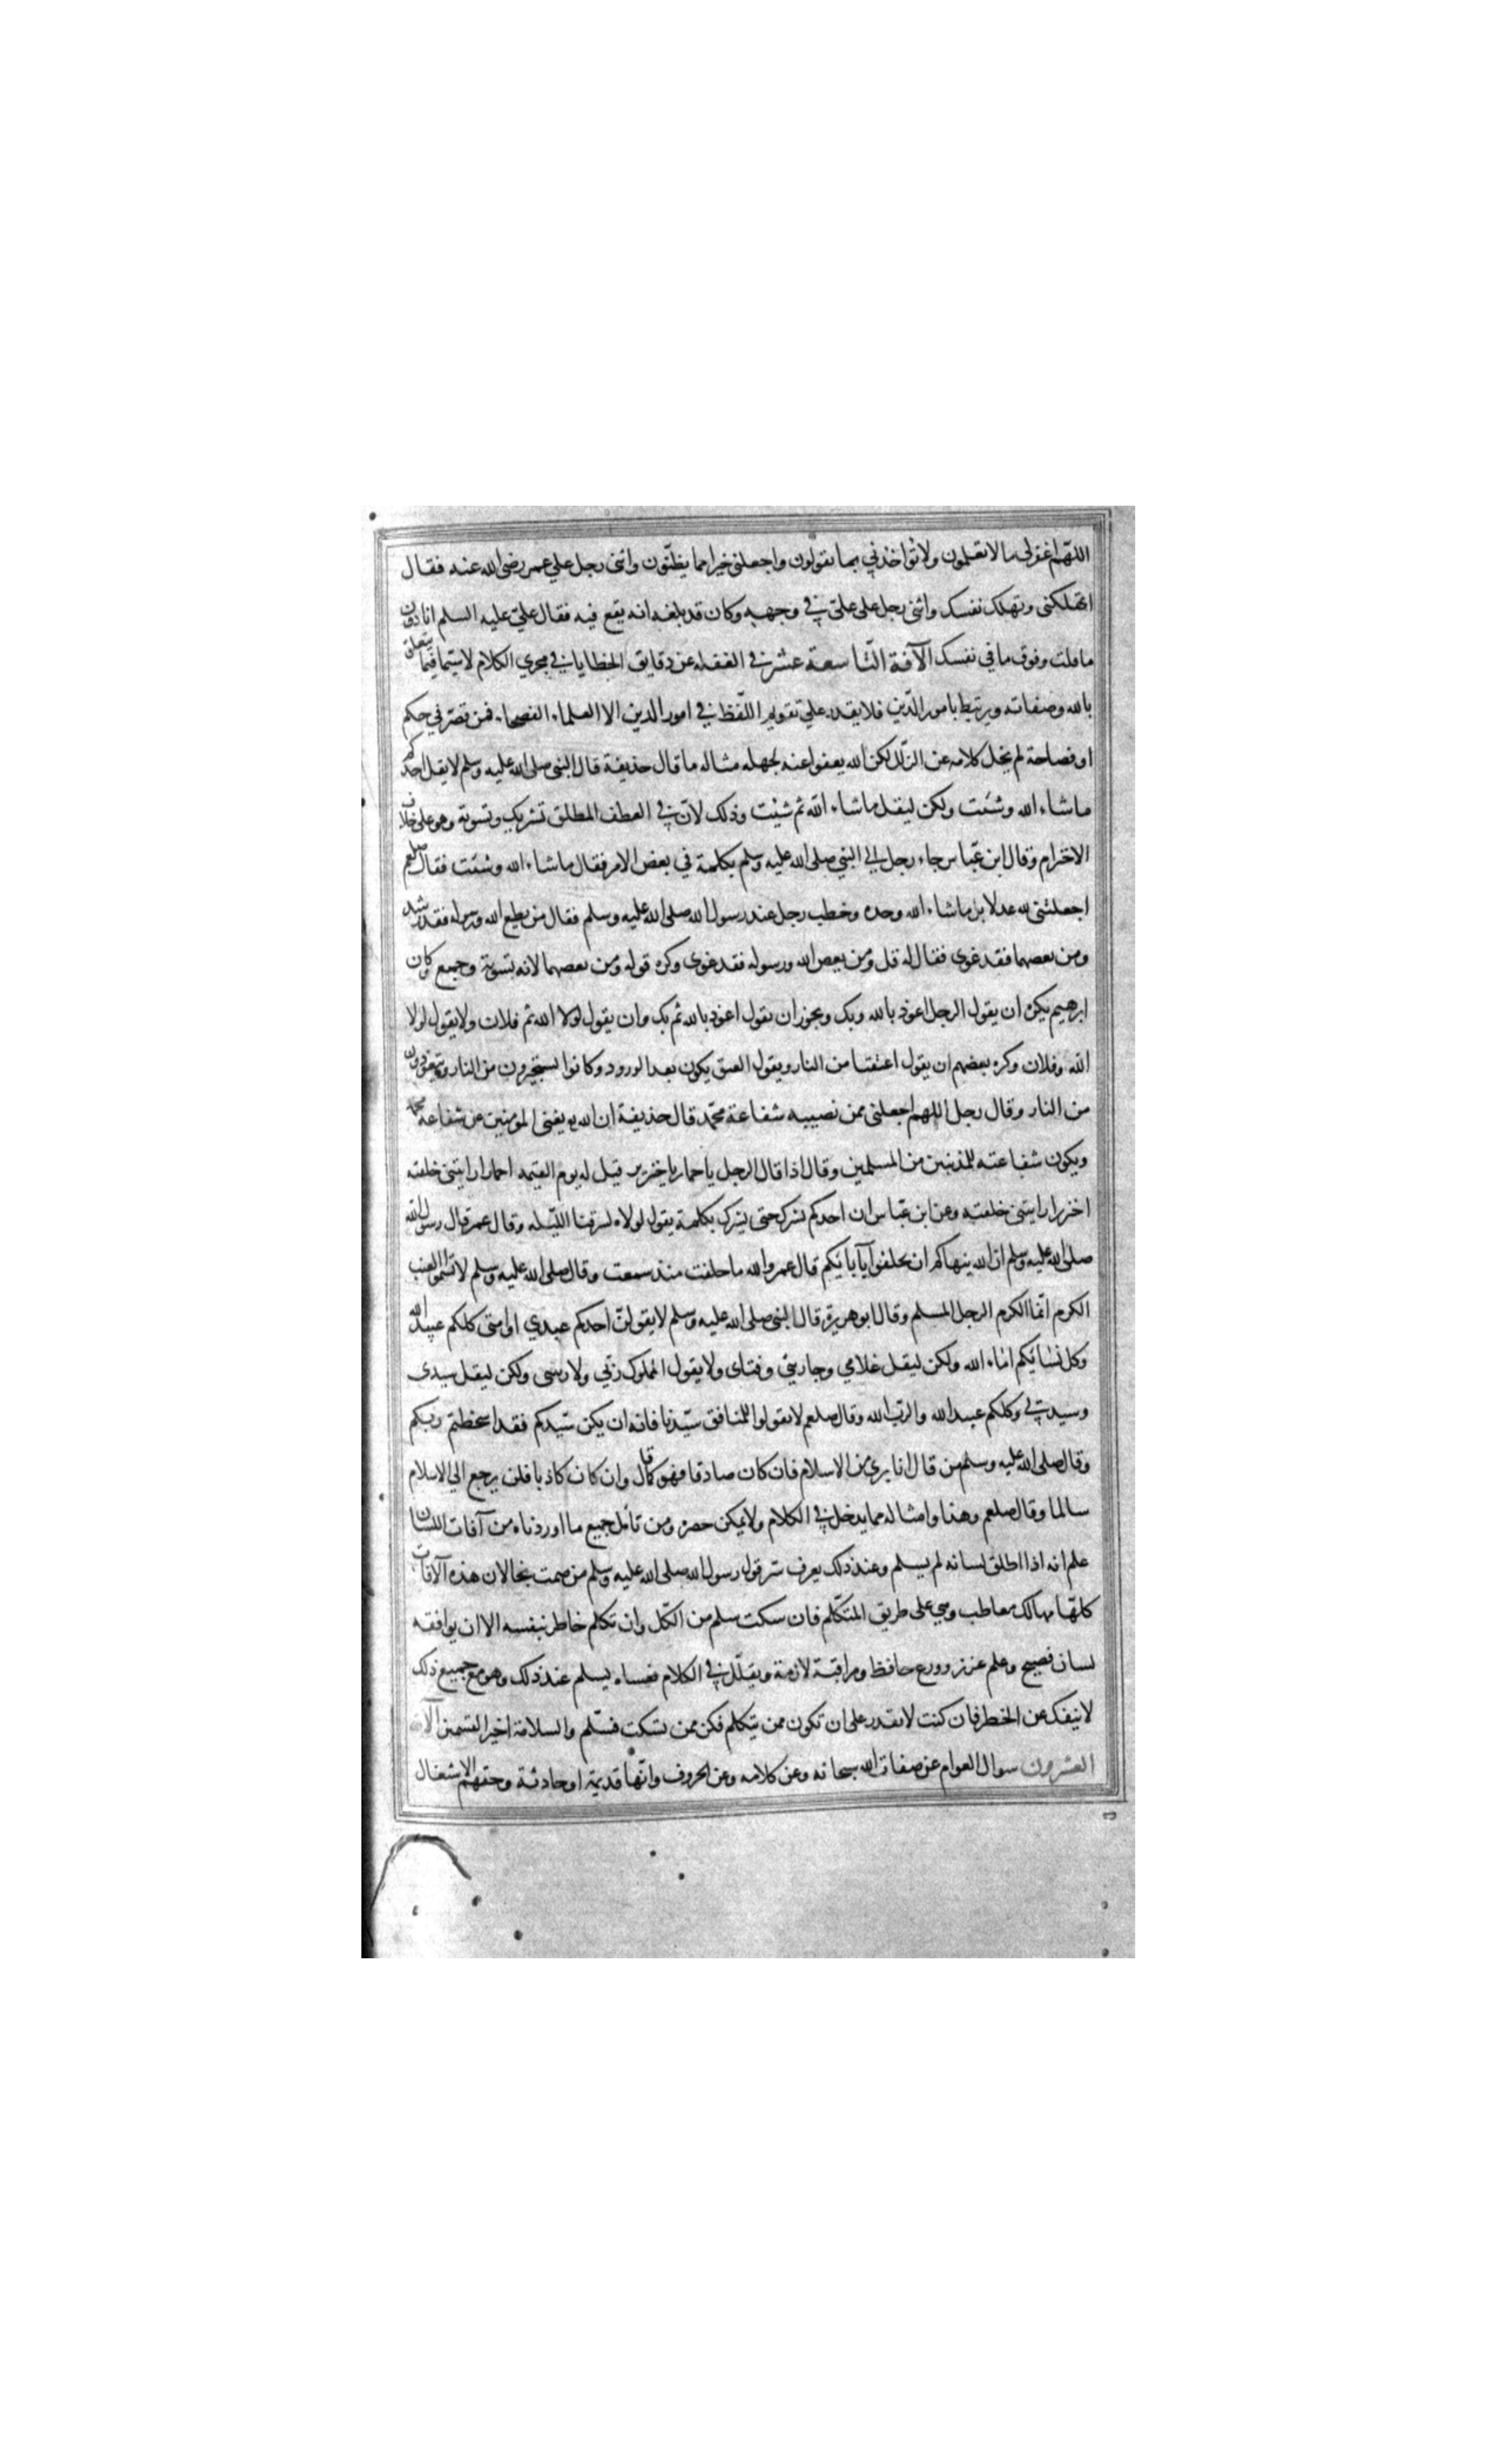 اللهم اغفر لى ما لا يعلمون ولا تواخذني بما يقولون واجعلنى خيرا مما يظنّون واثنى رجل علي عمر رضى الله عنه فقال
اتهلكنى وتهلك نفسك واثنى رجل على علىّ في وجهه وكان قد بلغه انه يقع فيه فقال علىّ عليه السلم انا دون
ما قلت وفوق ما في نفسك الآفة التّاسعة عشر في الغفلة عن دقايق الخطايا في مجري الكلام لا سيّما فيما يتعلق
بالله وصفاته ويرتبط بامور الدّين فلا يقدر علي تقويم اللّفظ في امور الدين الا العلماء الفصحاء فمن قصّر في حكم
او فصاحة لم يخل كلامه عن الزلل لكن الله يعفوا عنه لجهله مثاله ما قال حذيفة قال النبى صلى الله عليه وسلم لا يقل احدكم
ماشاء الله وشئت ولكن ليقل ماشاء الله ثم شئت وذلك لانّ في العطف المطلق تشريك وتسوية وهو على خلاف
الاحترام وقال ابن عبّاس جاء رجل الي النبي صلى الله عليه وسلم بكلمة في بعض الامر فقال ماشاء الله وشئت فقال صلعم
اجعلتنى لله عدلا بل ماشاء الله وحده وخطب رجل عند رسول الله صلى الله عليه وسلم فقال من يطع الله ورسوله فقد رشد
ومن يعصهما فقد غوى فقال له قل ومن يعص الله ورسوله فقد غوى وكره قوله ومن يعصهما لانه تسوية وجمع وكان
ابرهيم يكره ان يقول الرجل اعوذ بالله وبك ويجوز ان يقول اعوذ بالله ثم بك وان يقول لولا الله ثم فلان ولا يقول لولا
الله وفلان وكره بعضهم ان يقول اعتقنا من النار ويقول العتق يكون بعد الورود وكانوا يستجيرون من النار ويتعوذون
من النار وقال رجل اللهم اجعلنى ممن تصيبه شفاعة محمّد قال حذيفة ان الله يغنى المومنين عن شفاعة محمد
ويكون شفاعته للمذنبين من المسلمين وقال اذا قال الرجل يا حمار يا خنزير قيل له يوم القيمه احمارا رايتنى خلقته
اخنزيرا رايتنى خلقته وعن ابن عبّاس ان احدكم يشرك حتى يشرك بكلبه يقول لولاه لسرقنا الليله وقال عمر قال رسول الله
صلى الله عليه وسلم ان الله ينهاكم ان تحلفوا بآبائكم قال عمر والله ما حلفت منذ سمعت وقال صلى الله عليه وسلم لا تسمّوا العنب
الكرم انّما الكرم الرجل المسلم وقال ابو هريرة قال النبى صلى الله عليه وسلم لا يقولنّ احدكم عبدي او امتى كلكم عبيد الله
وكل نسائكم اماء الله ولكن ليقل غلامي وجاريتى وفتاى ولا يقول المملوك ربّي ولا ربتى ولكن ليقل سيدى
وسيدتي وكلكم عبيد الله والربّ الله وقال صلعم لا تقولوا للمنافق سيّدنا فانه ان يكن سيّدكم فقد اسخطتم ربكم
وقال صلى الله عليه وسلم من قال انا بري من الاسلام فان كان صادقا فهو كما قال وان كان كاذبا فلن يرجع الي الاسلام
سالما وقال صلعم وهذا وامثاله مما يدخل في الكلام ولا يمكن حصره ومن تامّل جميع ما اوردناه من آفات اللسان
علم انه اذا اطلق لسانه لم يسلم وعند ذلك يعرف سّر قول رسول الله صلى الله عليه وسلم من صمت نجا لان هذه الآفات
كلهّا مهالك معاطب وهي على طريق المتكلم فان سكت سلم من الكّل وان تكلم خاطر بنفسه الا ان يوافقه
لسان فصيح وعلم غزير وورع حافظ ومراقبة لازمة ويقلّل في الكلام فعساه يسلم عند ذلك وهو مع جميع ذلك
لا ينفك عن الخطر فان كنت لا تقدر على ان تكون ممن يتكلم فكن ممن سكت فسّلم والسلامة احد القسمين الآفة
العشرون سوال العوام عن صفات الله سبحانه وعن كلامه وعن الحروف وانّها قديمة او حادثة وحقهم الاشتغال